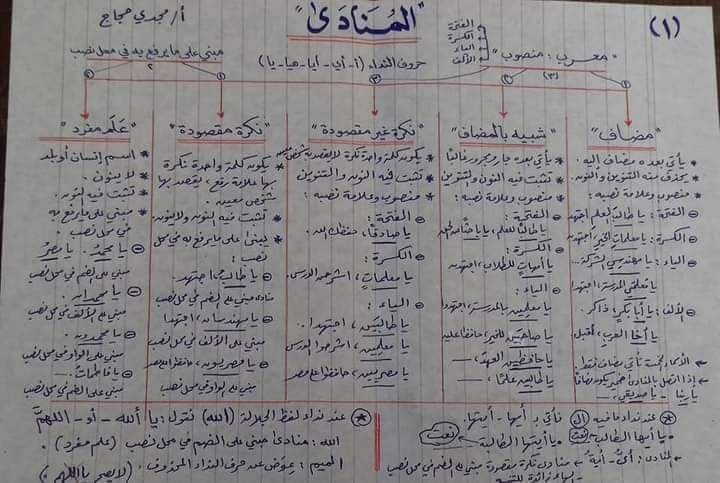 (١)
"المُنَادَىٰ"
أ/ مجدي حجاج
"معرب: منصوب"
الفتحة
الكسرة
الياء
الألف
حروف النداء (أ - أي - أيا - هيا - يا)
مبني على ما يرفع به في محل نصب
(٣)
٢
"مضاف"
* يأتي بعده مضاف إليه.
* يحذف منه التنوين والنون.
* منصوب وعلامة نصبه:
⊖ الفتحة: يا طالبَ العلم اجتهد
الكسرة: يا معلماتِ الخير اجتهدن
الياء: يا مهندسي الشركة...
يا معلمَي المدرسة، اجتهدا
⊖ الألف: يا أبا بكرٍ: ذاكر.
يا أخا العرب، أقبل
يا ربنا - يا صديقي..
"شبيه بالمضاف"
* يأتي بعده جار ومجرور غالبًا
* تثبت فيه النون والتنوين
* منصوب وعلامة نصبه:
⊖ الفتحة:
يا طالبًا للعلم،
⊖ الكسرة:
يا أمهاتٍ للطلاب، اجتهدن
⊖ الياء:
يا معلمِين بالمدرسة، اجتهدوا
يا صاحبَين للخير، حافظا عليه
يا حافظِين العهدَ،
يا طالبَين علمًا،
"نكرة غير مقصودة"
* يكون كلمة واحدة نكرة لا يقصد به شخص معين
* تثبت فيه النون والتنوين
* منصوب وعلامة نصبه:
⊖ الفتحة:
يا صادقًا، حفظك الله.
الكسرة:
يا معلماتٍ، اشرحن الدرس
⊖ الياء:
يا طالبَين، اجتهدا.
يا معلمِين، اشرحوا الدرس
يا مصريين، حافظوا على مصر
"نكرة مقصودة"
* يكون كلمة واحدة نكرة
بها علامة رفع، يقصد بها
شخص معين.
* تثبت فيه النون ولا ينون.
* يبنى على ما يرفع به في محل
نصب:
⊖ يا طالبُ، اجتهد.
منادى مبني على الضم في محل نصب
⊖ يا مهندسان، اجتهدا
مبني على الألف في محل نصب
⊖ يا مصريون، حافظوا على مصر
مبني على الواو في محل نصب
"عَلَم مفرد"
* اسم إنسان أو بلد
* لا ينون.
* تثبت فيه النون.
* مبني على ما يرفع به
في محل نصب.
⊖ يا محمدُ. يا مصرُ
مبني على الضم في محل نصب
⊖ يا محمدان.
مبني على الألف في محل نصب
⊖ يا محمدون.
مبني على الواو في محل نصب
⊖ يا فاطماتُ..
مبني على الضم في محل نصب
* عند نداء ما فيه (ال) نأتي بـ أيها - أيتها.
يا أيها الطالب نعت يا أيتها الطالبة نعت
المنادى: أيُّ - أيةُ ← منادى نكرة مقصودة مبني على الضم في محل نصب
* عند نداء لفظ الجلالة (الله) نقول: يا أللهُ - أو - اللهمَّ
الله: منادى مبني على الضم في محل نصب (علم مفرد).
الميم: عوض عن حرف النداء المحذوف.